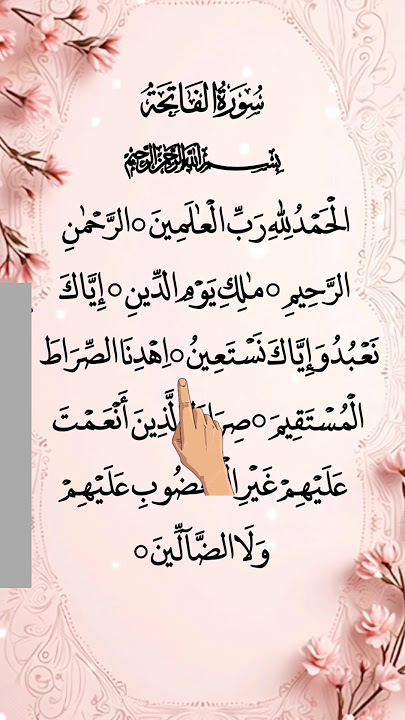 سُورَةُ الفَاتِحَةُ
بِسْمِ اللهِ الرَّحْمٰنِ الرَّحِيْمِ
الْحَمْدُ لِلّٰهِ رَبِّ الْعٰلَمِينَ ○ الرَّحْمٰنِ
الرَّحِيْمِ ○ مٰلِكِ يَوْمِ الدِّينِ ○ إِيَّاكَ
نَعْبُدُ وَإِيَّاكَ نَسْتَعِينُ ○ اِهْدِنَا الصِّرَاطَ
الْمُسْتَقِيمَ ○ الَّذِينَ أَنْعَمْتَ
عَلَيْهِمْ غَيْرِ عَلَيْهِمْ
وَلَا الضَّآلِّينَ ○